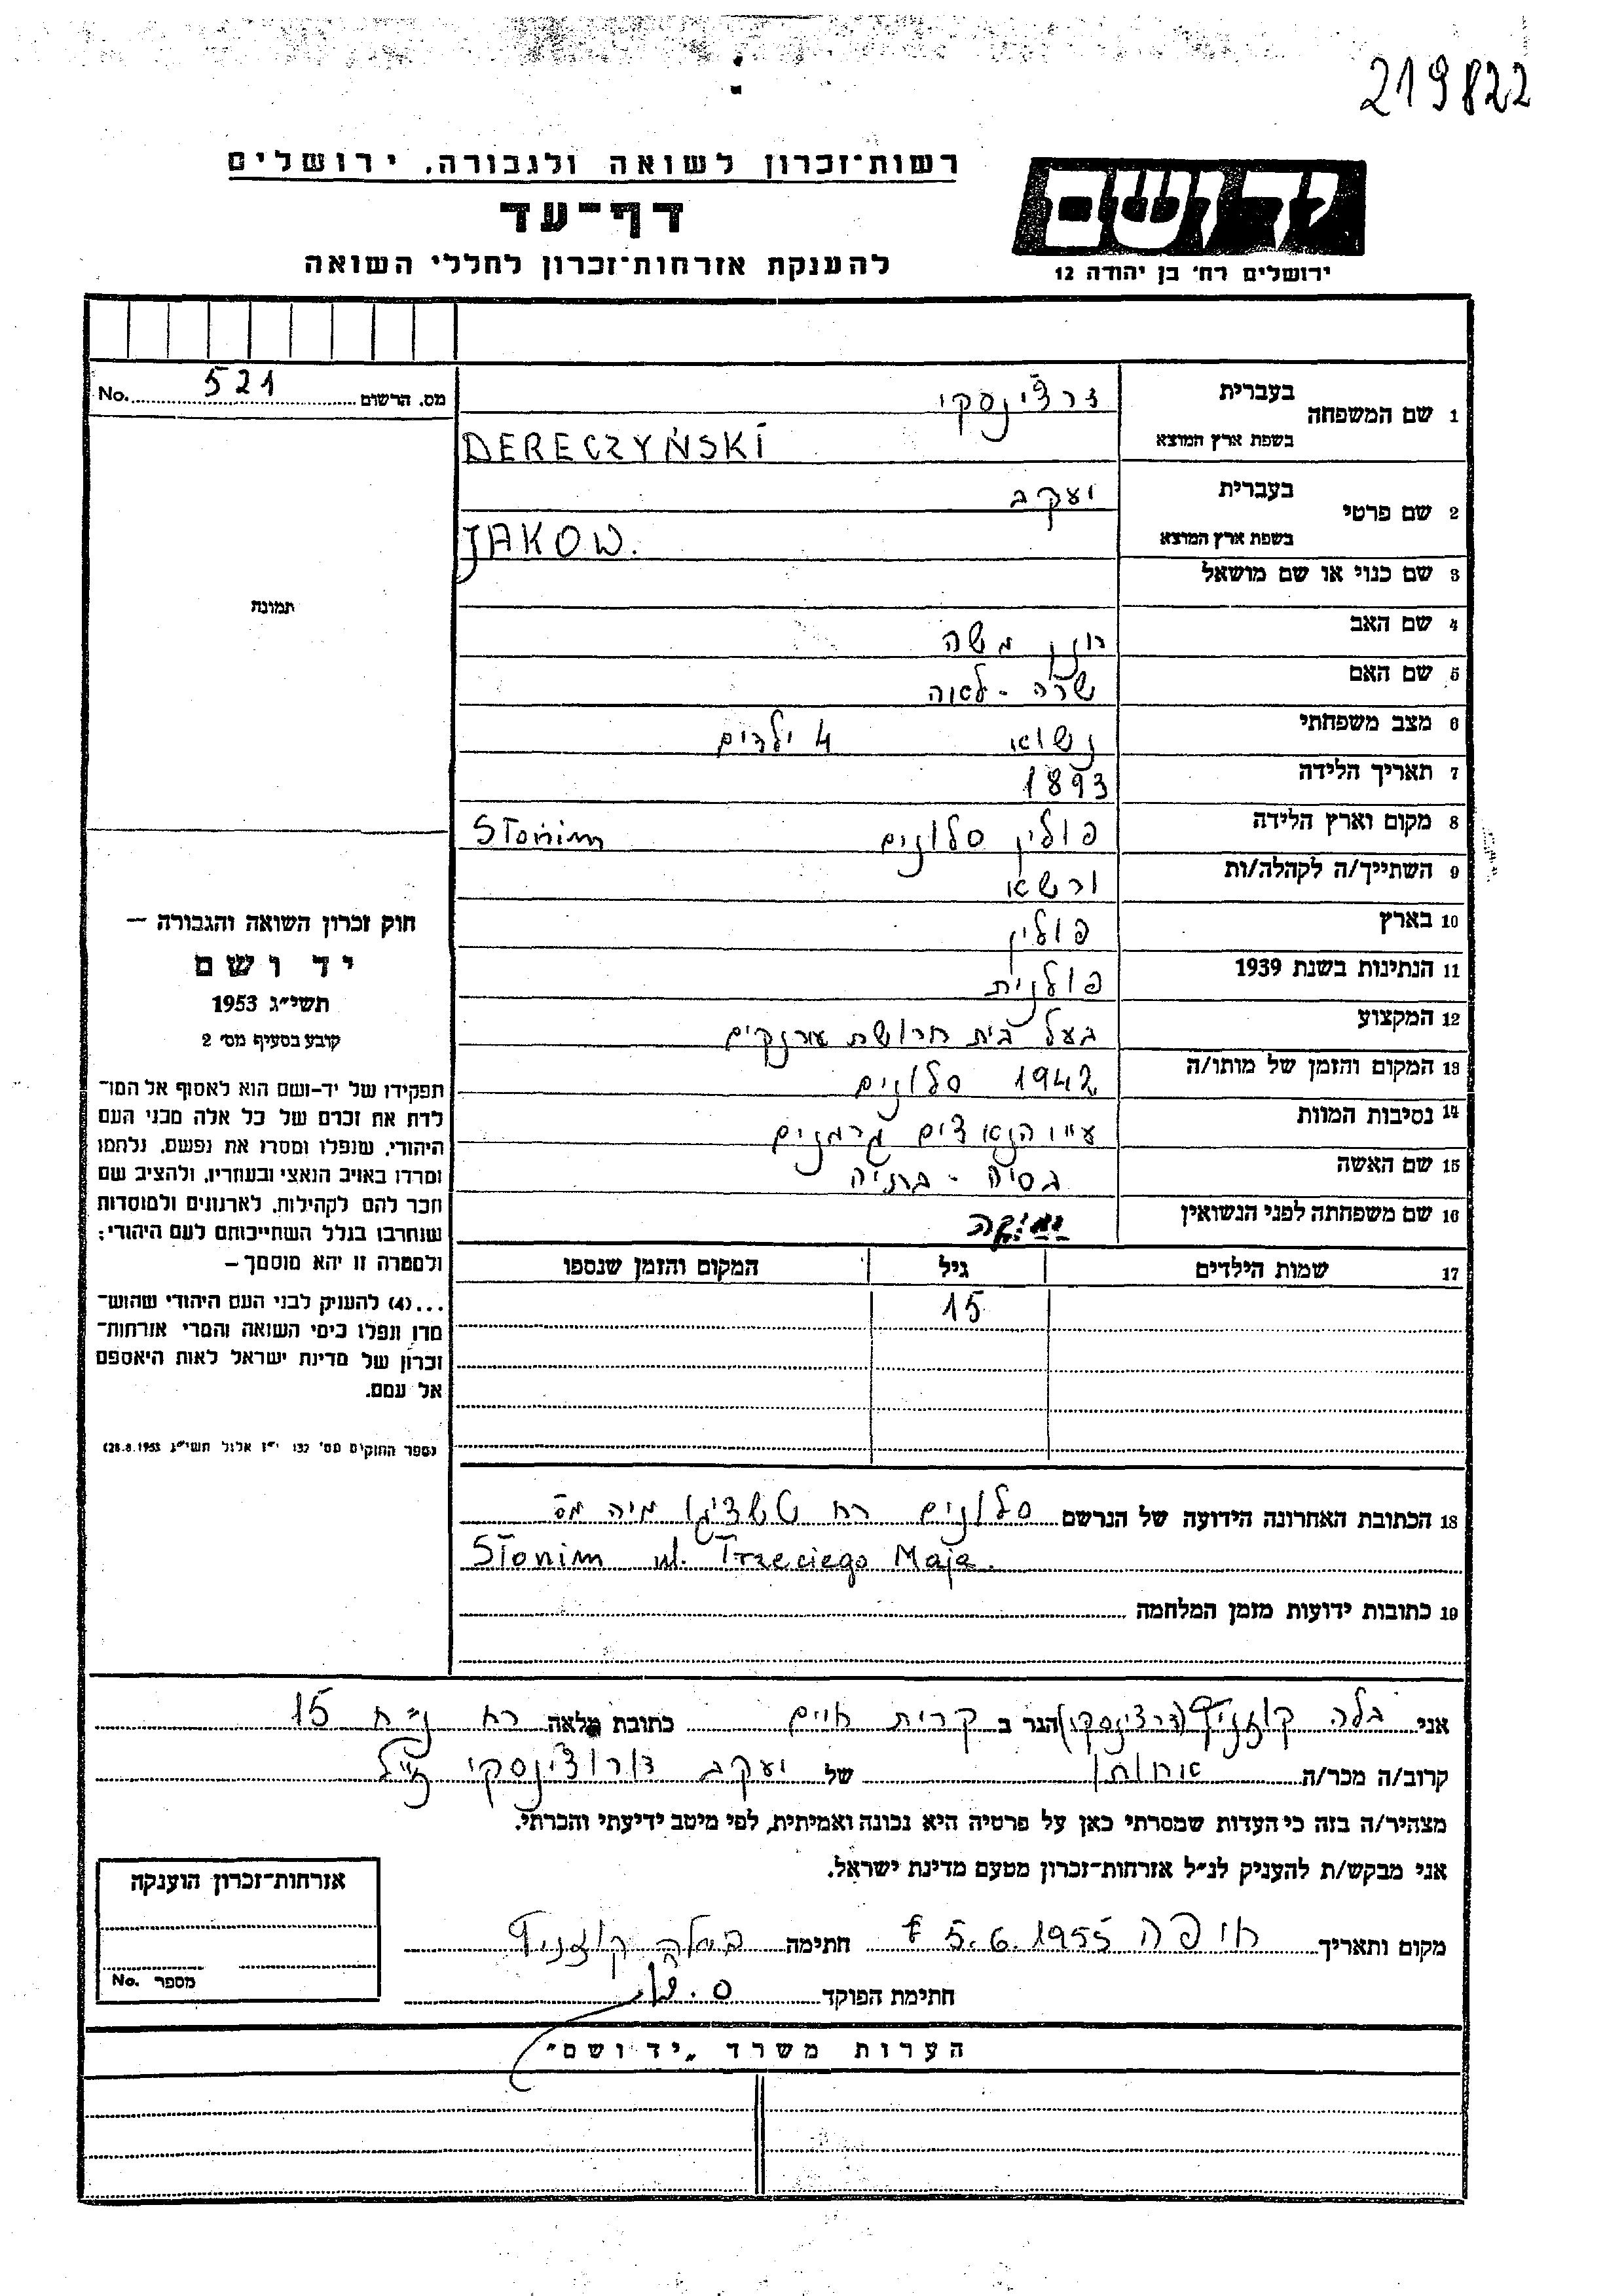 219822
רשות־זכרון לשואה ולגבורה, ירושלים
דף־עד
להענקת אזרחות־זכרון לחללי השואה
יד ושם
ירושלים רח' בן יהודה 12
מס. הרשום 521 No.
1 שם המשפחה
בעברית דרצ'ינסקי
בשפת ארץ המוצא DERECZYŃSKI
2 שם פרטי
בעברית יעקב
בשפת ארץ המוצא JAKOW.
3 שם כנוי או שם מושאל
4 שם האב משה
5 שם האם שרה - לאה
6 מצב משפחתי נשוא 4 ילדים
7 תאריך הלידה 1893
8 מקום וארץ הלידה פולין סלונים Słonim
9 השתייך/ה לקהלה/ות ורשא
10 בארץ פולין
11 הנתינות בשנת 1939 פולנית
12 המקצוע בעל בית חרושת
13 המקום והזמן של מותו/ה 1942 סלונים
14 נסיבות המוות ע"י הנאצים גרמנים
15 שם האשה בסיה -
16 שם משפחתה לפני הנשואין
17 שמות הילדים גיל המקום והזמן שנספו
15
תמונה
חוק זכרון השואה והגבורה —
יד ושם
תשי"ג 1953
קובע בסעיף מס' 2
תפקידו של יד-ושם הוא לאסוף אל המו־
לדת את זכרם של כל אלה מבני העם
היהודי, שנפלו ומסרו את נפשם, נלחמו
ומרדו באויב הנאצי ובעוזריו, ולהציב שם
וזכר להם לקהילות, לארגונים ולמוסדות
שנחרבו בגלל השתייכותם לעם היהודי;
ולמטרה זו יהא מוסמך —
...(4) להעניק לבני העם היהודי שהוש־
מדו ונפלו בימי השואה והמרי אזרחות־
זכרון של מדינת ישראל לאות היאספם
אל עמם.
(ספר החוקים מס' 132 י"ז אלול תשי"ג 28.8.1953)
18 הכתובת האחרונה הידועה של הנרשם סלונים רח טשצ'יגו מיה מס
Słonim ul. Trzeciego Maja.
19 כתובות ידועות מזמן המלחמה
אני בלה (דרצינסקי) הגר ב קרית חיים כתובת מלאה רח 15
קרוב/ה מכר/ה אחותו של יעקב דורוצ'ינסקי ז"ל
מצהיר/ה בזה כי העדות שמסרתי כאן על פרטיה היא נכונה ואמיתית, לפי מיטב ידיעתי והכרתי.
אני מבקש/ת להעניק לנ"ל אזרחות-זכרון מטעם מדינת ישראל.
מקום ותאריך חיפה 5.6.1955 חתימה
חתימת הפוקד
אזרחות־זכרון הוענקה
מספר No.
הערות משרד „יד ושם"